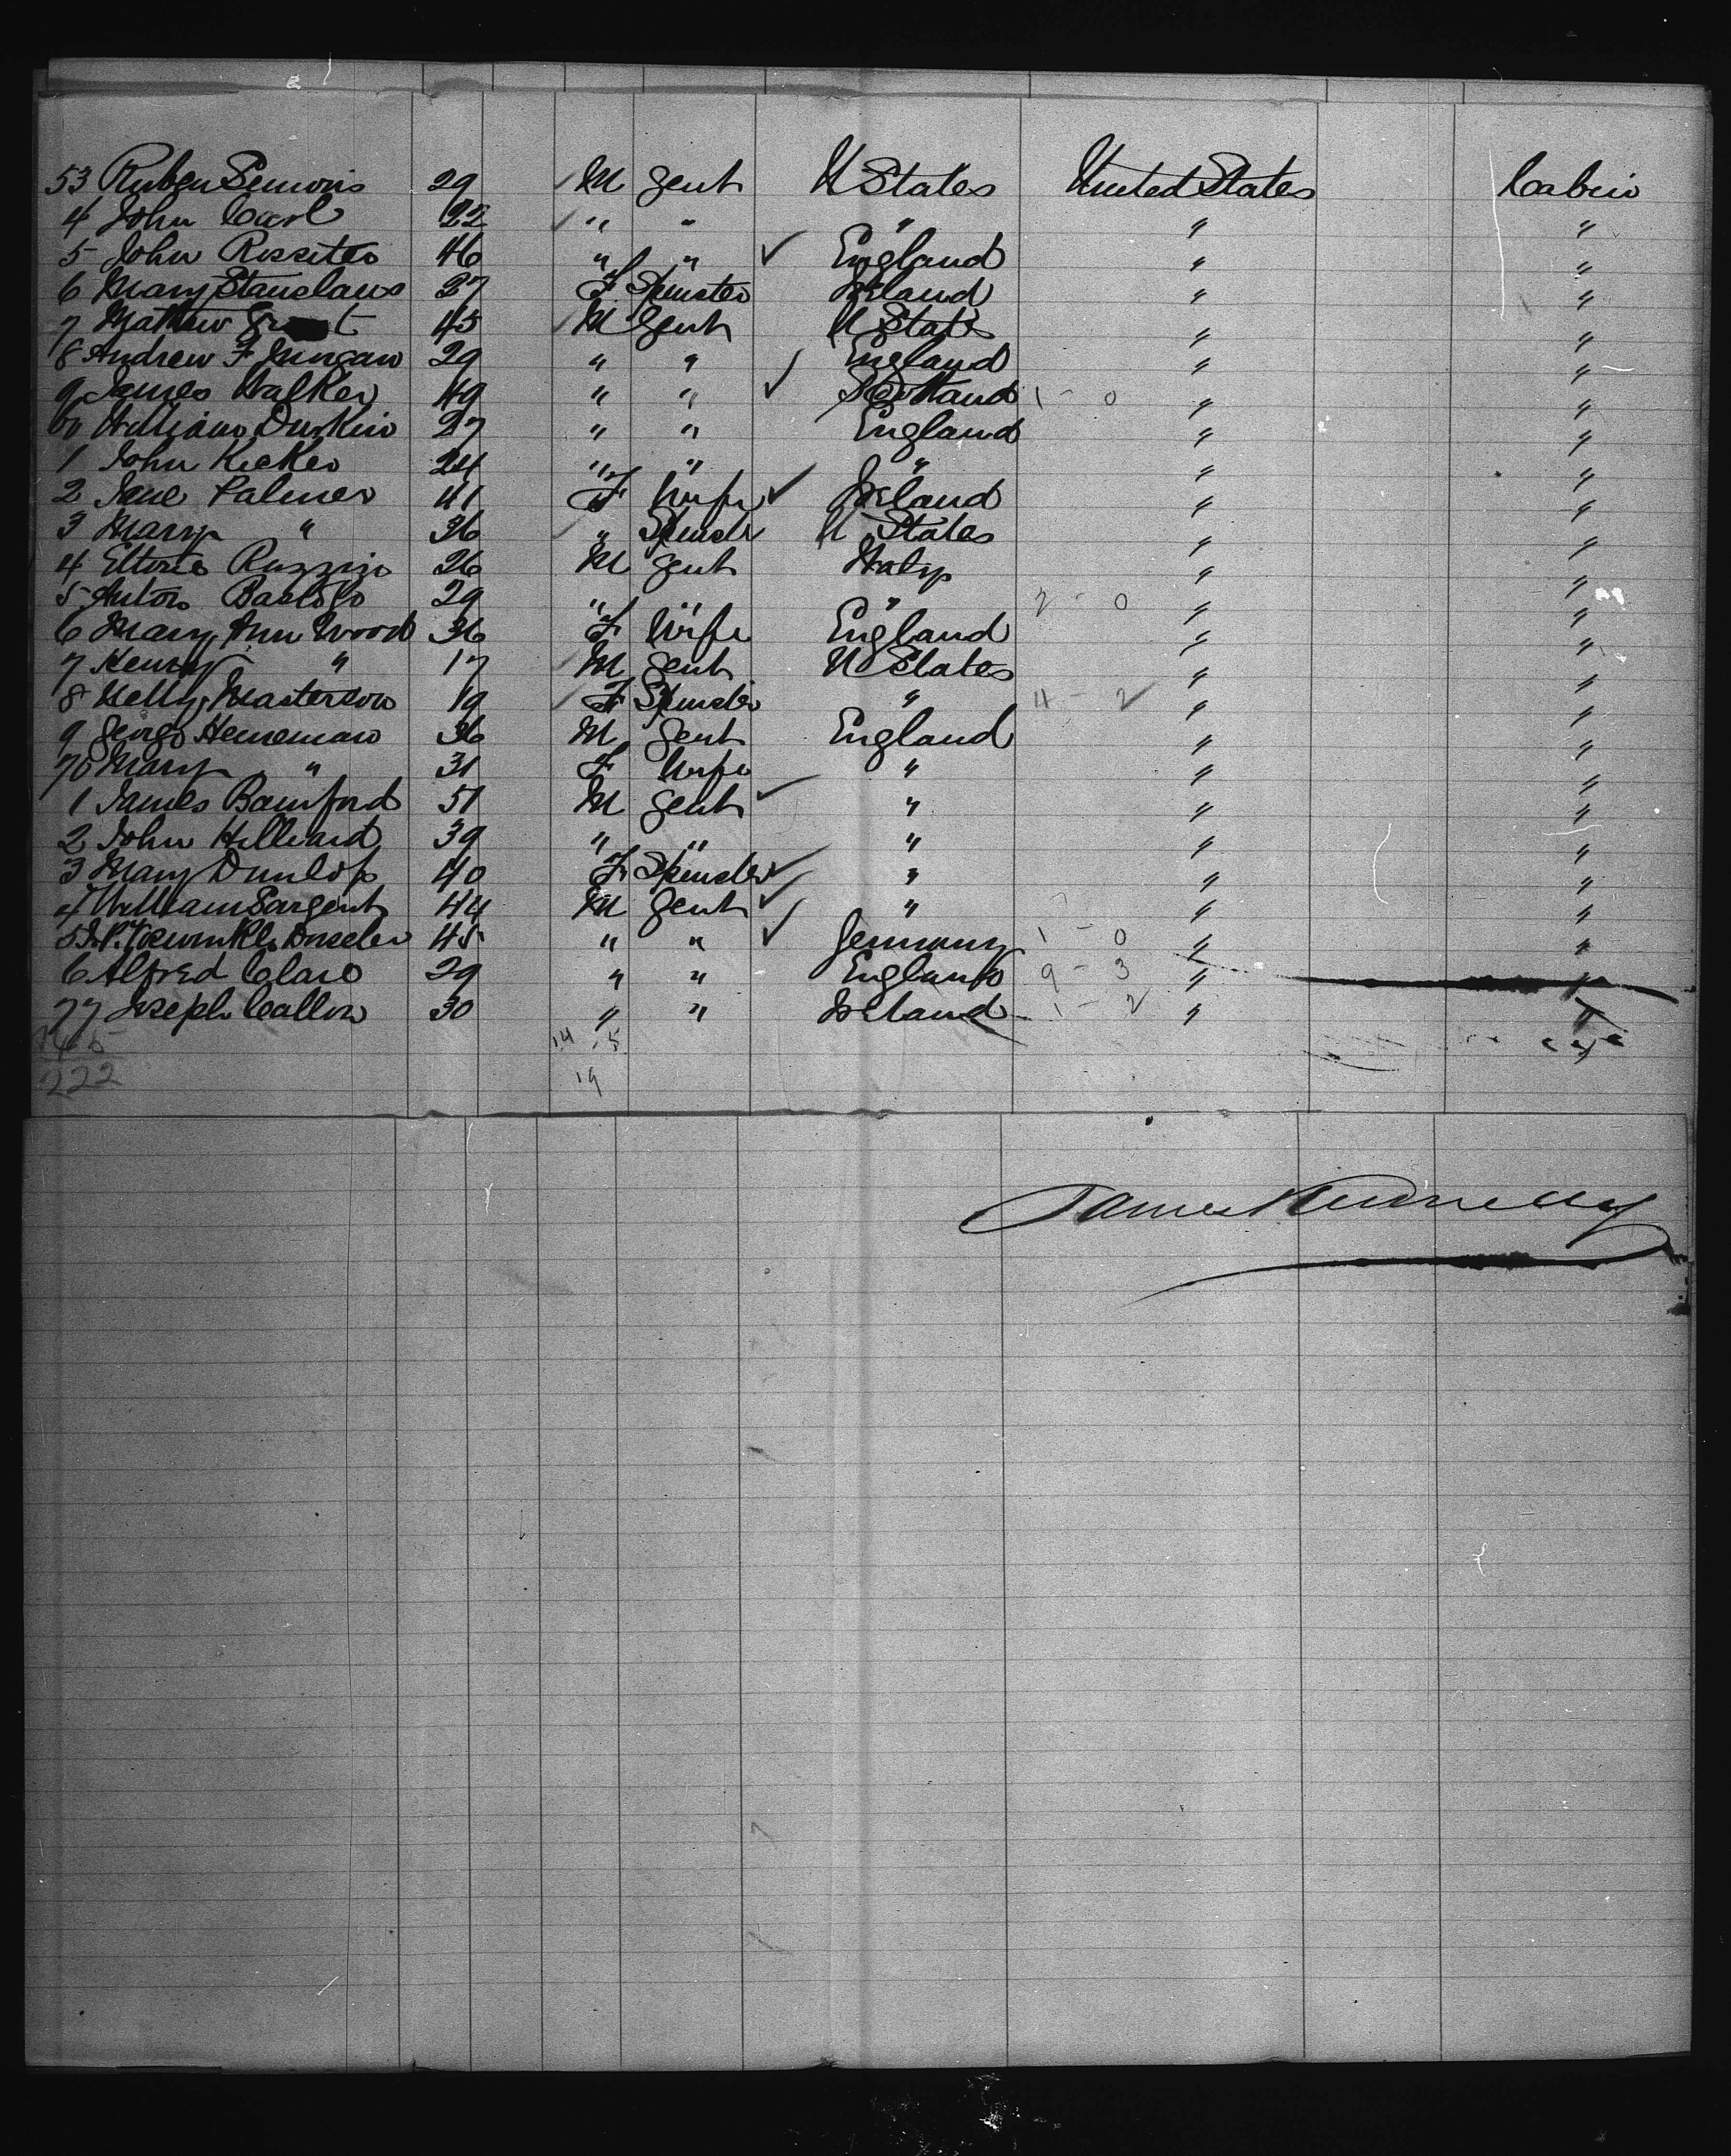 53 Ruben Simons 29 M gent U States United States Cabin
4 John Carl 22 " " " " "
5 John Rossiter 46 " " England " "
6 Mary Stanslaus 27 F Spinster Ireland " "
7 Mathew 45 M Gent U States " "
8 Andrew F 29 " " England " "
9 James Walker 49 " " Scotland 1 - 0 " "
60 William Durkin 27 " " England " "
1 John Kicker 24 " " " " "
2 Jane Palmer 41 F Wife Ireland " "
3 Mary " 36 " Spinster U States " "
4 Ettore 26 M gent Italy " "
5 Anton 29 " " " 2 - 0 " "
6 Mary Ann Wood 36 F Wife England " "
7 Henry " 17 M gent U States " "
8 Nelly Masterson 19 F Spinster " 4 - 2 " "
9 George Heineman 36 M gent England " "
70 Mary " 31 F Wife " " "
1 James Bamford 51 M gent " " "
2 John Hilliard 39 " " " " "
3 Mary Dunlop 40 F Spinster " " "
4 William Sargent 44 M gent " " "
5 45 " " Germany 1 - 0 " "
6 Alfred Clare 29 " " England 9 - 3 " "
77 Joseph Callon 30 " " Ireland 1 - 2 " "
145 14 - 5
222 19
James Kennelly